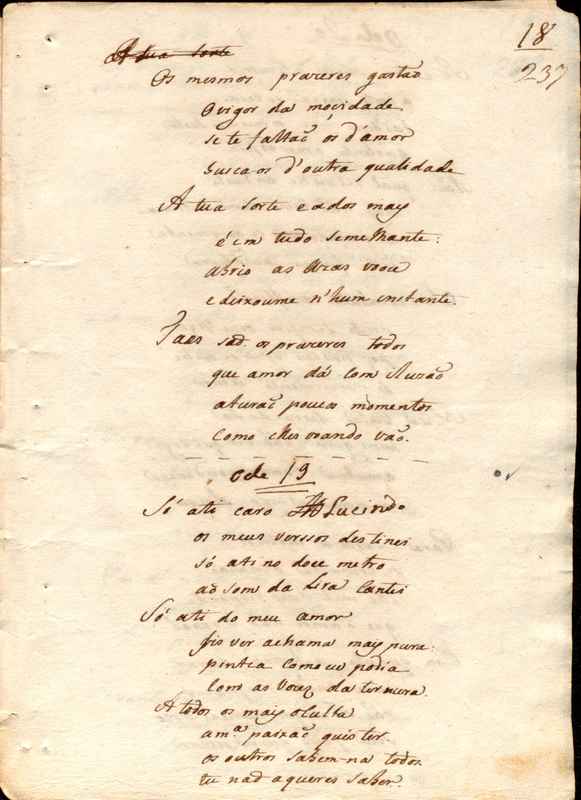 18
237
A tua sorte
Os mesmos prazeres gastaõ
O vigor da mocidade.
se te faltaõ os d'amor
busca-os d'outra qualidade
A tua sorte e a dos mais
é em tudo semelhante:
abrio as azas voou
e deixoume n'hum instante.
Taes saõ os prazeres todos
que amor dá com iluzaõ
aturaõ poucos momentos
como elles voando vaõ.
Ode 19
Só a ti caro Lucindo
os meus verssos destinei
só a ti no doce metro
ao som da Lira cantei
Só a ti do meu amor
fis ver a chama mais pura:
pintca como eu podia
Com as vozes da ternura.
A todos os mais oculta
a mª paixaõ quis ter.
os outros sabem-na todos
tu naõ a queres saber.